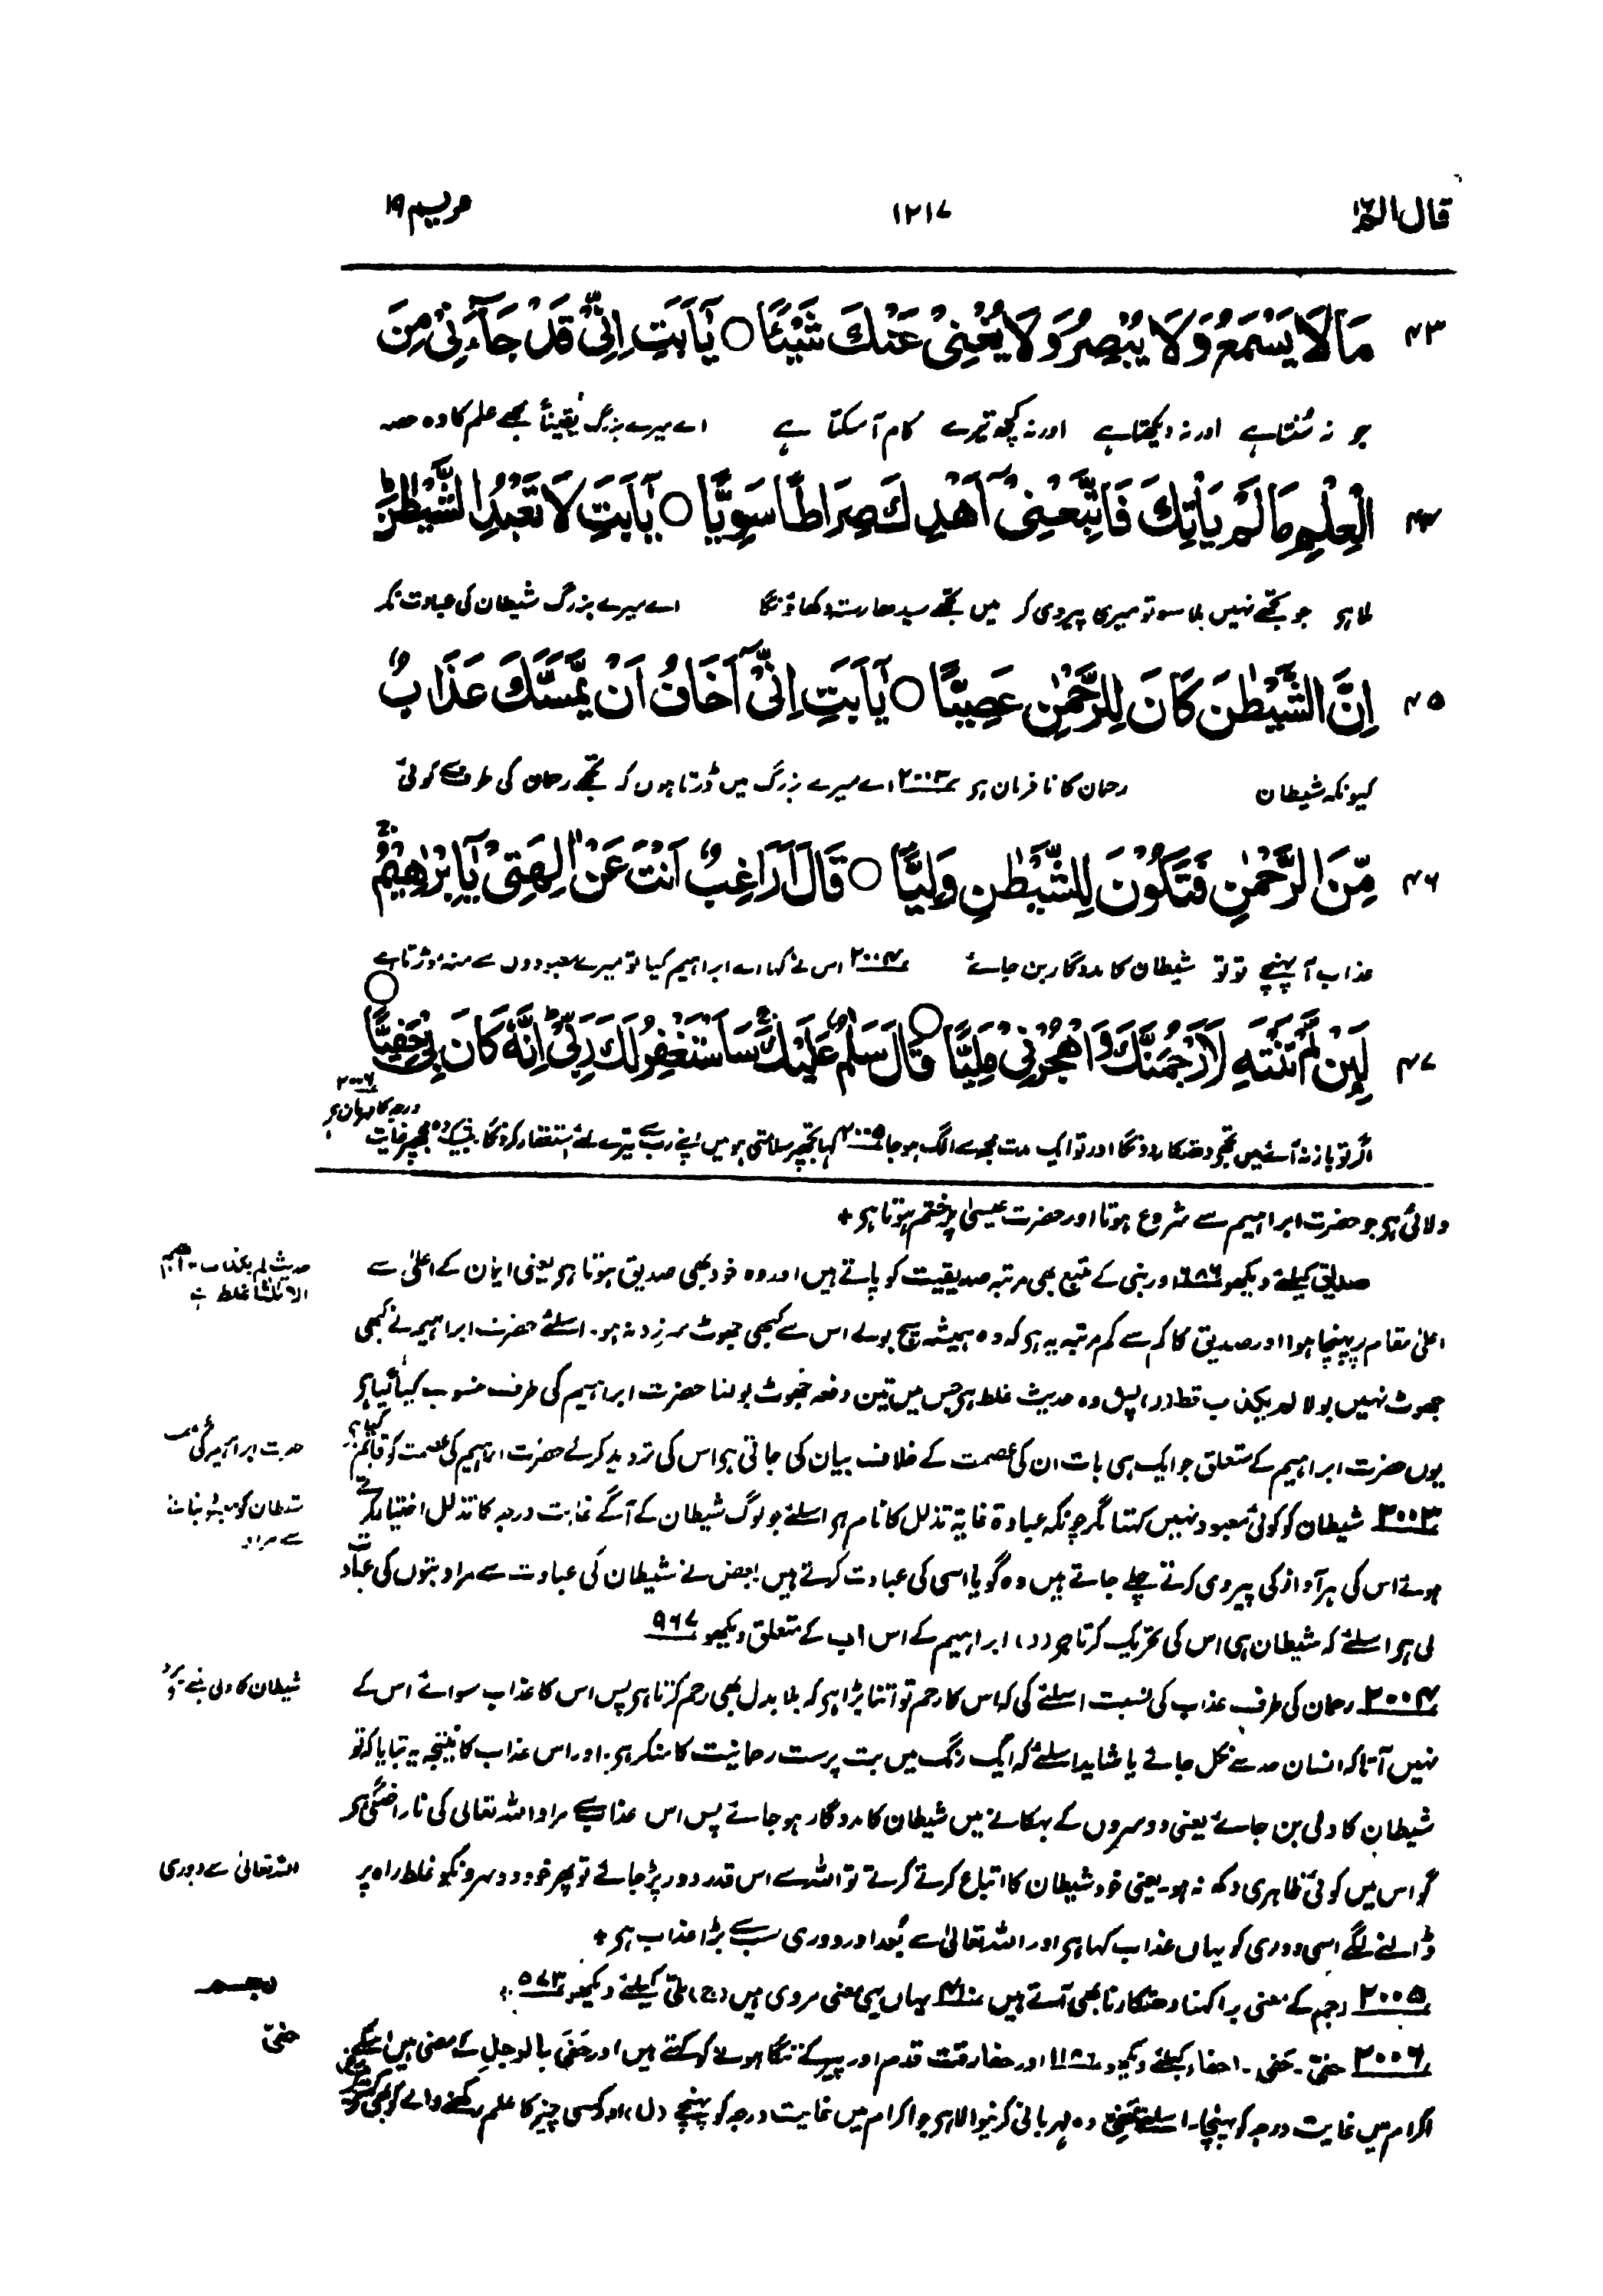 قال الم ۱۶
۱۲۱۷
مریم ۱۹
۴۳ مَا لَا يَسْمَعُ وَلَا يُبْصِرُ وَلَا يُغْنِيْ عَنْكَ شَيْئًا ○ يٰٓاَبَتِ اِنِّيْ قَدْ جَآءَنِيْ مِنَ
جو نہ سُنتا ہے اور نہ دیکھتا ہے اور نہ کچھ تیرے کام آسکتا ہے اے میرے بزرگ یقیناً مجھے علم کا وہ حصہ
۴۴ الْعِلْمِ مَا لَمْ يَاْتِكَ فَاتَّبِعْنِيْٓ اَهْدِكَ صِرَاطًا سَوِيًّا ○ يٰٓاَبَتِ لَا تَعْبُدِ الشَّيْطٰنَ
ملا ہی جو تجھے نہیں ملا سو تو میری پیروی کر میں تجھے سیدھا رستہ دکھاؤنگا اے میرے بزرگ شیطان کی عبادت نکر
۴۵ اِنَّ الشَّيْطٰنَ كَانَ لِلرَّحْمٰنِ عَصِيًّا ○ يٰٓاَبَتِ اِنِّيْٓ اَخَافُ اَنْ يَّمَسَّكَ عَذَابٌ
کیونکہ شیطان رحمان کا نافرمان ہی ۲۰۰۳ اے میرے بزرگ میں ڈرتا ہوں کہ تجھے رحمان کی طرف سے کوئی
۴۶ مِّنَ الرَّحْمٰنِ فَتَكُوْنَ لِلشَّيْطٰنِ وَلِيًّا ○ قَالَ اَرَاغِبٌ اَنْتَ عَنْ اٰلِهَتِيْ يٰٓاِبْرٰهِيْمُ
عذاب آپہنچے تو تو شیطان کا مددگار بن جائے ۲۰۰۴ اس نے کہا اے ابراہیم کیا تو میرے معبودوں سے منہ موڑتا ہے
۴۷ لَئِنْ لَّمْ تَنْتَهِ لَاَرْجُمَنَّكَ وَاهْجُرْنِيْ مَلِيًّا ○ قَالَ سَلٰمٌ عَلَيْكَ سَاَسْتَغْفِرُ لَكَ رَبِّيْ اِنَّهٗ كَانَ بِيْ حَفِيًّا ○
اگر تو باز نہ آئے میں تجھے دھتکار دونگا اور تو ایک مدت مجھ سے الگ ہو جا ۲۰۰۵ کہا تجھپر سلامتی ہو میں اپنے رب سے تیرے لئے استغفار کرونگا بیشک وہ مجھپر غایت درجہ کا مہربان ہی ۲۰۰۶
دلائی ہی جو حضرت ابراہیم سے شروع ہوتا اور حضرت عیسیٰ پر ختم ہوتا ہی +
صدیق کیلئے دیکھو ۶۸۶ اور نبی کے متبع بھی مرتبہ صدیقیت کو پاتے ہیں اور وہ خود بھی صدیق ہوتا ہی یعنی ایمان کے اعلیٰ سے
حدیث لم یکذب ابراہیم الا ثلثا غلط ہے
اعلیٰ مقام پر پہنچا ہوا اور صدیق کا کم سے کم مرتبہ یہ ہی کہ وہ ہمیشہ سچ بولے اس سے کبھی جھوٹ سرزد نہ ہو۔ اسلئے حضرت ابراہیم نے کبھی
جھوٹ نہیں بولا لم یکذب قط (ر) پس وہ حدیث غلط ہی جس میں تین دفعہ جھوٹ بولنا حضرت ابراہیم کی طرف منسوب کیا گیا ہی
یوں حضرت ابراہیم کے متعلق جو ایک ہی بات ان کی عصمت کے خلاف بیان کی جاتی ہی اس کی تردید کرکے حضرت ابراہیم کی عصمت کو قائم کیا ہی
۲۰۰۳ شیطان کو کوئی معبود نہیں کہتا مگر چونکہ عبادۃ غایۃ تذلل کا نام ہی اسلئے جو لوگ شیطان کے آگے غایت درجہ کا تذلل اختیار کرتے
شیطان کو معبود بنانے سے مراد
ہوئے اس کی ہر آواز کی پیروی کرتے چلے جاتے ہیں وہ گویا اسی کی عبادت کرتے ہیں بعض نے شیطان کی عبادت سے مراد بتوں کی عبادت
لی ہی اسلئے کہ شیطان ہی اس کی تحریک کرتا ہی (ر) ابراہیم کے اس اب کے متعلق دیکھو ۹۶۷
۲۰۰۴ رحمان کی طرف عذاب کی نسبت اسلئے کی کہ اس کا رحم تو اتنا بڑا ہی کہ بلا بدل بھی رحم کرتا ہی پس اس کا عذاب سوائے اس کے
نہیں آتا کہ انسان حد سے نکل جائے یا شاید اسلئے کہ ایک رنگ میں بت پرست رحمانیت کا منکر ہی اور اس عذاب کا نتیجہ یہ بتایا کہ تو
شیطان کا ولی بن جائے یعنی دوسروں کے بہکانے میں شیطان کا مددگار ہو جائے پس اس عذاب سے مراد اللہ تعالیٰ کی ناراضگی ہی
گو اس میں کوئی ظاہری دکھ نہ ہو۔ یعنی خود شیطان کا اتباع کرتے کرتے تو اللہ سے اس قدر دور پڑ جائے تو پھر خود دوسرونکو غلط راہ پر
اللہ تعالیٰ سے دوری
ڈالنے لگے اسی دوری کو یہاں عذاب کہا ہی اور اللہ تعالیٰ سے بُعد اور دوری سب سے بڑا عذاب ہی +
۲۰۰۵ رجم کے معنی برا کہنا دھتکارنا بھی آتے ہیں یہاں یہی معنی مروی ہیں (ج) ملی کیلئے دیکھو ۵۷۳
رجم
۲۰۰۶ حفیّ۔ حفی۔ احفاء کیلئے دیکھو اور حفا رقت قدم اور پیر کے ننگا ہونے کو کہتے ہیں اور حَفِیَ بالرجل کے معنی ہیں اس کے
حفیّ
اکرام میں غایت درجہ کو پہنچا۔ اسلئے حفیّ وہ مہربانی کرنیوالا ہی جو اکرام میں غایت درجہ کو پہنچے (ل) اور کسی چیز کا علم رکھنے والے کو بھی